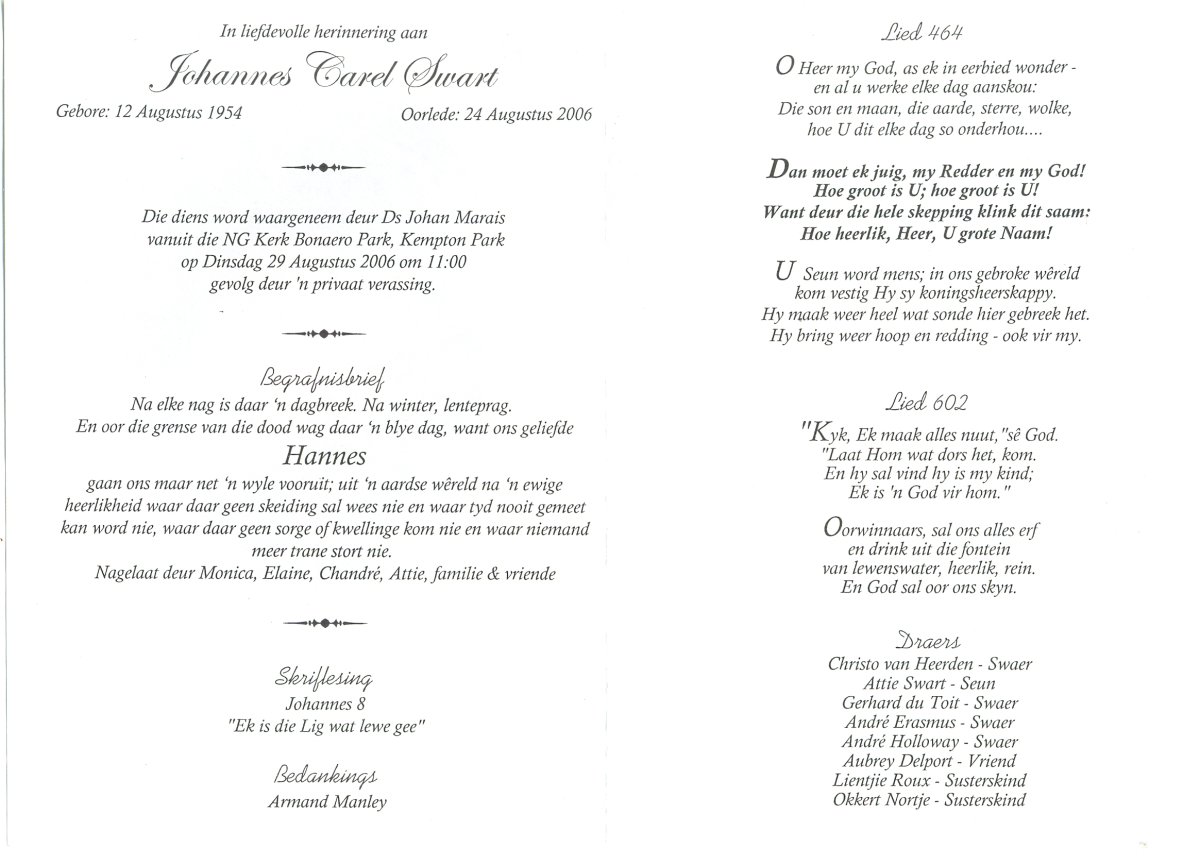 In liefdevolle herinnering aan
Johannes Carel Swart
Gebore: 12 Augustus 1954
Oorlede: 24 Augustus 2006
Die diens word waargeneem deur Ds Johan Marais
vanuit die NG Kerk Bonaero Park, Kempton Park
op Dinsdag 29 Augustus 2006 om 11:00
gevolg deur 'n privaat verassing.
Begrafnisbrief
Na elke nag is daar ‘n dagbreek. Na winter, lenteprag.
En oor die grense van die dood wag daar ‘n blye dag, want ons geliefde
Hannes
gaan ons maar net ‘n wyle vooruit; uit ‘n aardse wêreld na ‘n ewige
heerlikheid waar daar geen skeiding sal wees nie en waar tyd nooit gemeet
kan word nie, waar daar geen sorge of kwellinge kom nie en waar niemand
meer trane stort nie.
Nagelaat deur Monica, Elaine, Chandré, Attie, familie & vriende
Skriflesing
Johannes 8
"Ek is die Lig wat lewe gee"
Bedankings
Armand Manley
Lied 464
O Heer my God, as ek in eerbied wonder -
en al u werke elke dag aanskou:
Die son en maan, die aarde, sterre, wolke,
hoe U dit elke dag so onderhou....
Dan moet ek juig, my Redder en my God!
Hoe groot is U; hoe groot is U!
Want deur die hele skepping klink dit saam:
Hoe heerlik, Heer, U grote Naam!
U Seun word mens; in ons gebroke wêreld
kom vestig Hy sy koningsheerskappy.
Hy maak weer heel wat sonde hier gebreek het.
Hy bring weer hoop en redding - ook vir my.
Lied 602
"Kyk, Ek maak alles nuut,"sê God.
"Laat Hom wat dors het, kom.
En hy sal vind hy is my kind;
Ek is 'n God vir hom."
Oorwinnaars, sal ons alles erf
en drink uit die fontein
van lewenswater, heerlik, rein.
En God sal oor ons skyn.
Draers
Christo van Heerden - Swaer
Attie Swart - Seun
Gerhard du Toit - Swaer
André Erasmus - Swaer
André Holloway - Swaer
Aubrey Delport - Vriend
Lientjie Roux - Susterskind
Okkert Nortje - Susterskind